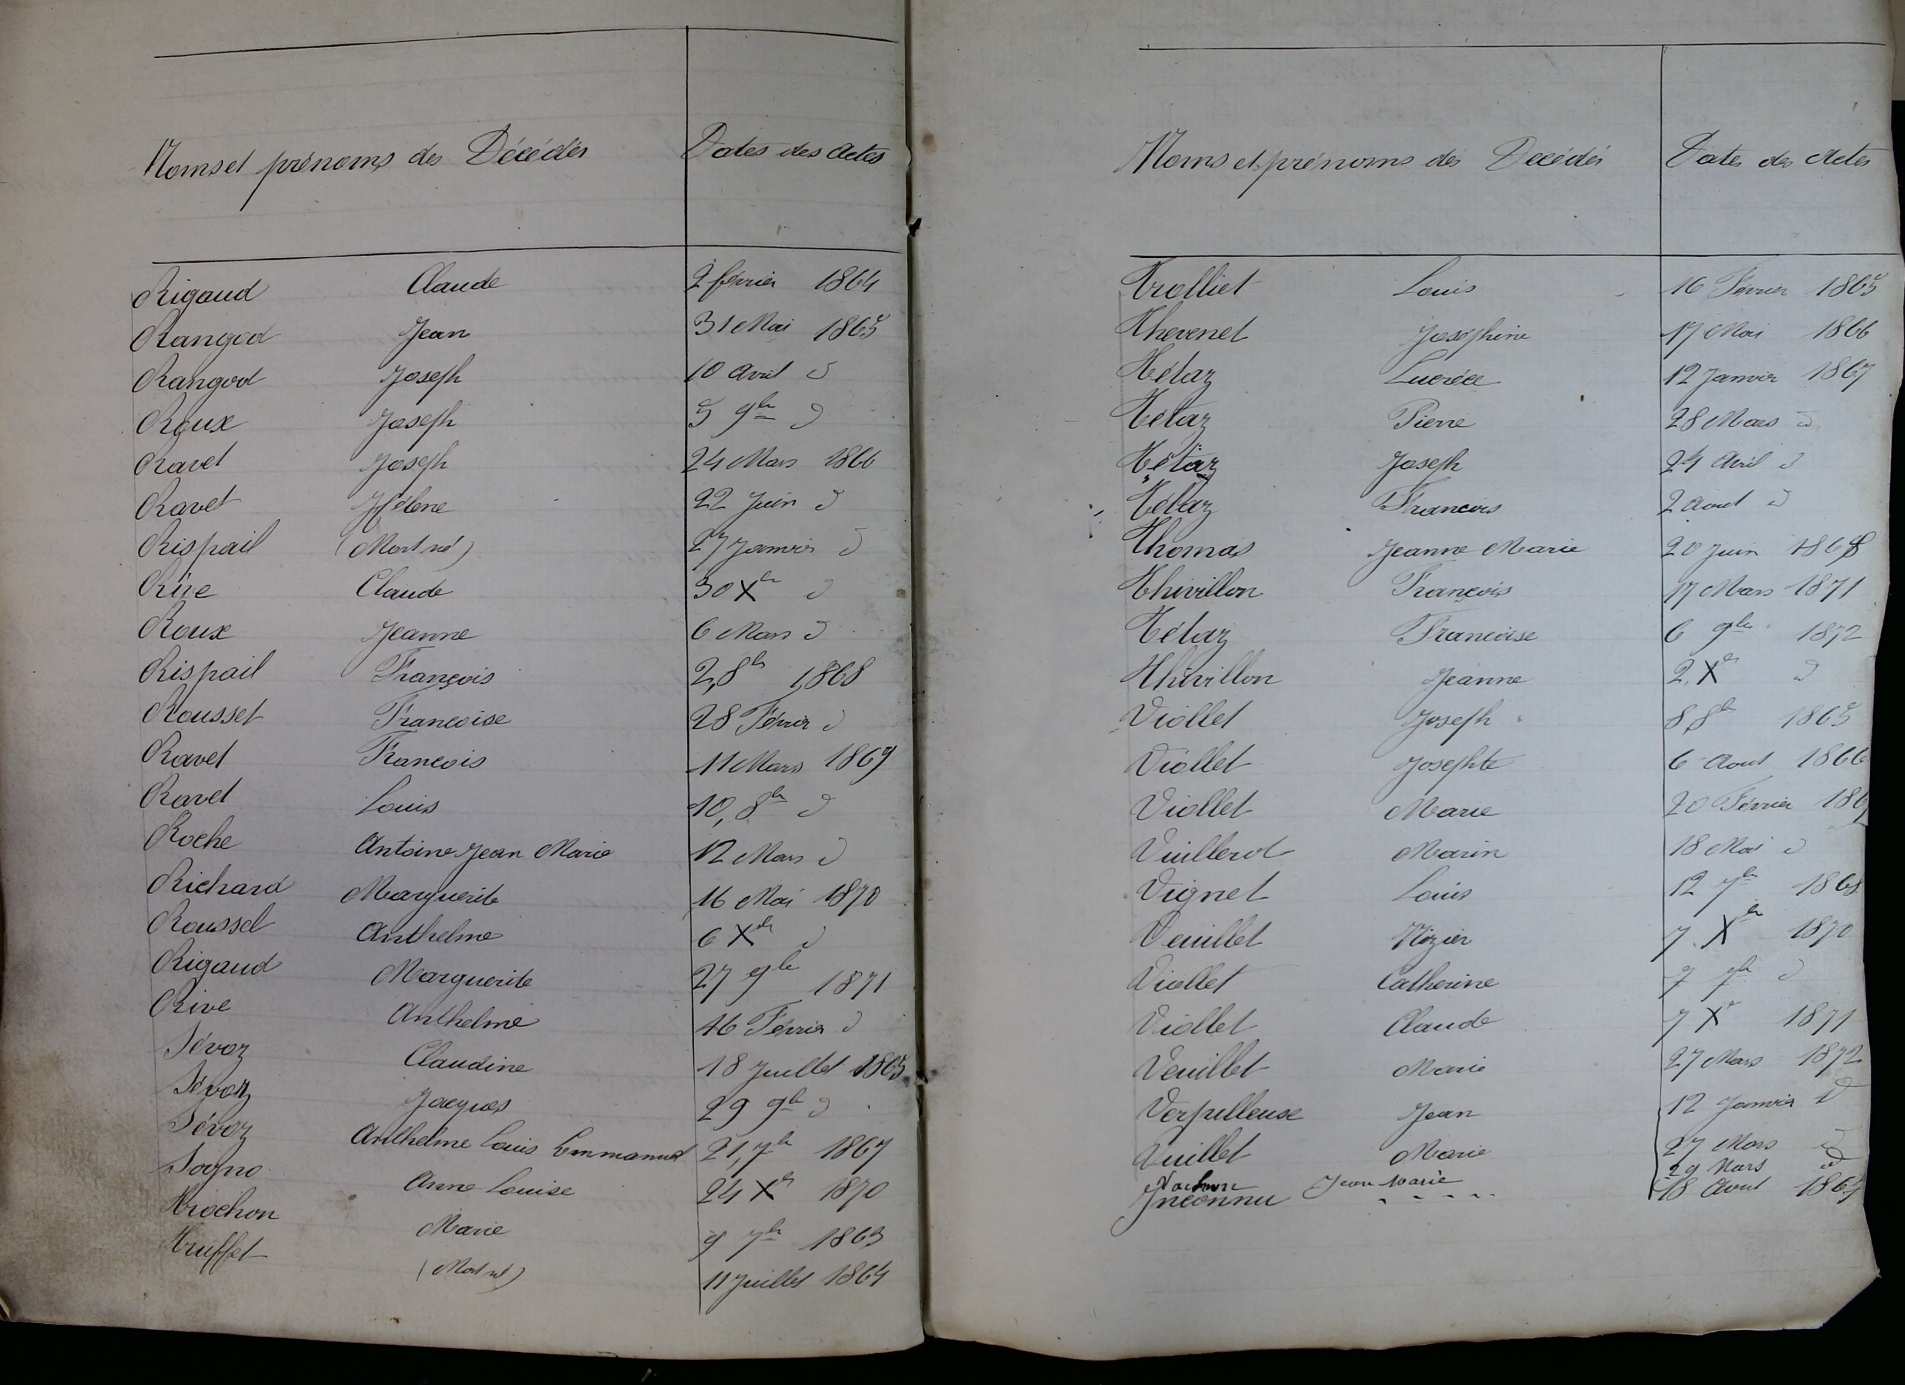 Noms et prénoms des Décédés Dates des Actes
Rigaud Claude 2 février 1864
Rangod Jean 31 Mai 1865
Rangod Joseph 10 Avril d
Roux Joseph 5 9bre d
Ravet Joseph 24 Mars 1866
Ravet Hélène 22 Juin d
Rispail (Mort né) 27 Janvier d
Rive Claude 30 Xbre d
Roux Jeanne 6 Mars d
Rispail François 2, 8bre 1868
Rousset Francoise 28 Février d
Ravet Francois 11 Mars 1869
Ravet Louis 10, 8bre d
Roche Antoine Jean Marie 12 Mars d
Richard Marguerite 16 Mai 1870
Rousset Anthelme 6 Xbre d
Rigaud Marguerite 27 9bre 1871
Rive Anthelme 16 Février d
Sévoz Claudine 18 Juillet 1865
Sévoz Jacques 29 9bre d
Sévoz Anthelme Louis Emmanuel 21, 7bre 1867
Sogno Anne Louise 24 Xbre 1870
Trochon Marie 9 7bre 1863
Truffet (Mort né) 11 Juillet 1864
Noms et prénoms des Décédés Dates des Actes
Trolliet Louis 16 Février 1865
Thevenet Josephine 17 Mai 1866
Tétaz Lucrèce 12 Janvier 1867
Tétaz Pierre 28 Mars d
Tétaz Joseph 24 Avril d
Tétaz Francois 2 Aout d
Thomas Jeanne Marie 20 Juin 1868
Thivillon François 17 Mars 1871
Tétaz Francoise 6 9bre 1872
Thivillon Jeanne 2 Xbre d
Viollet Joseph 8 8bre 1865
Viollet Josephte 6 Aout 1866
Viollet Marie 20 Février
Vuillerot Marin 18 Mai d
Vignet Louis 12 7bre 1868
Veuillet Vizier 7 Xbre 1870
Viollet Catherine 7 7bre d
Viollet Claude 7 Xbre 1871
Veuillet Marie 27 Mars 1872
Verpilleuse Jean 12 Janvier d
Vuillet Marie 27 Mars d
Vachon Jean Marie 29 Mars d
Inconnu - - - - - 18 Aout